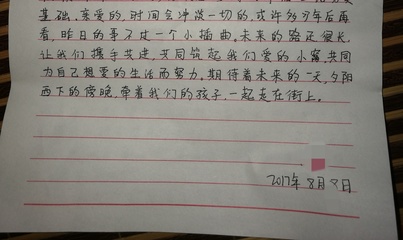 基础。亲爱的,时间会冲淡一切的,或许多少年后再
看,昨日的事不过一个小插曲,未来的路还很长,
让我们携手共建,共同筑起我们爱的小窝,共同
为自己想爱的生活而努力,期待着未来的一天,夕阳
西下的傍晚,牵着我们的孩子,一起走在街上。
2017年8月9日